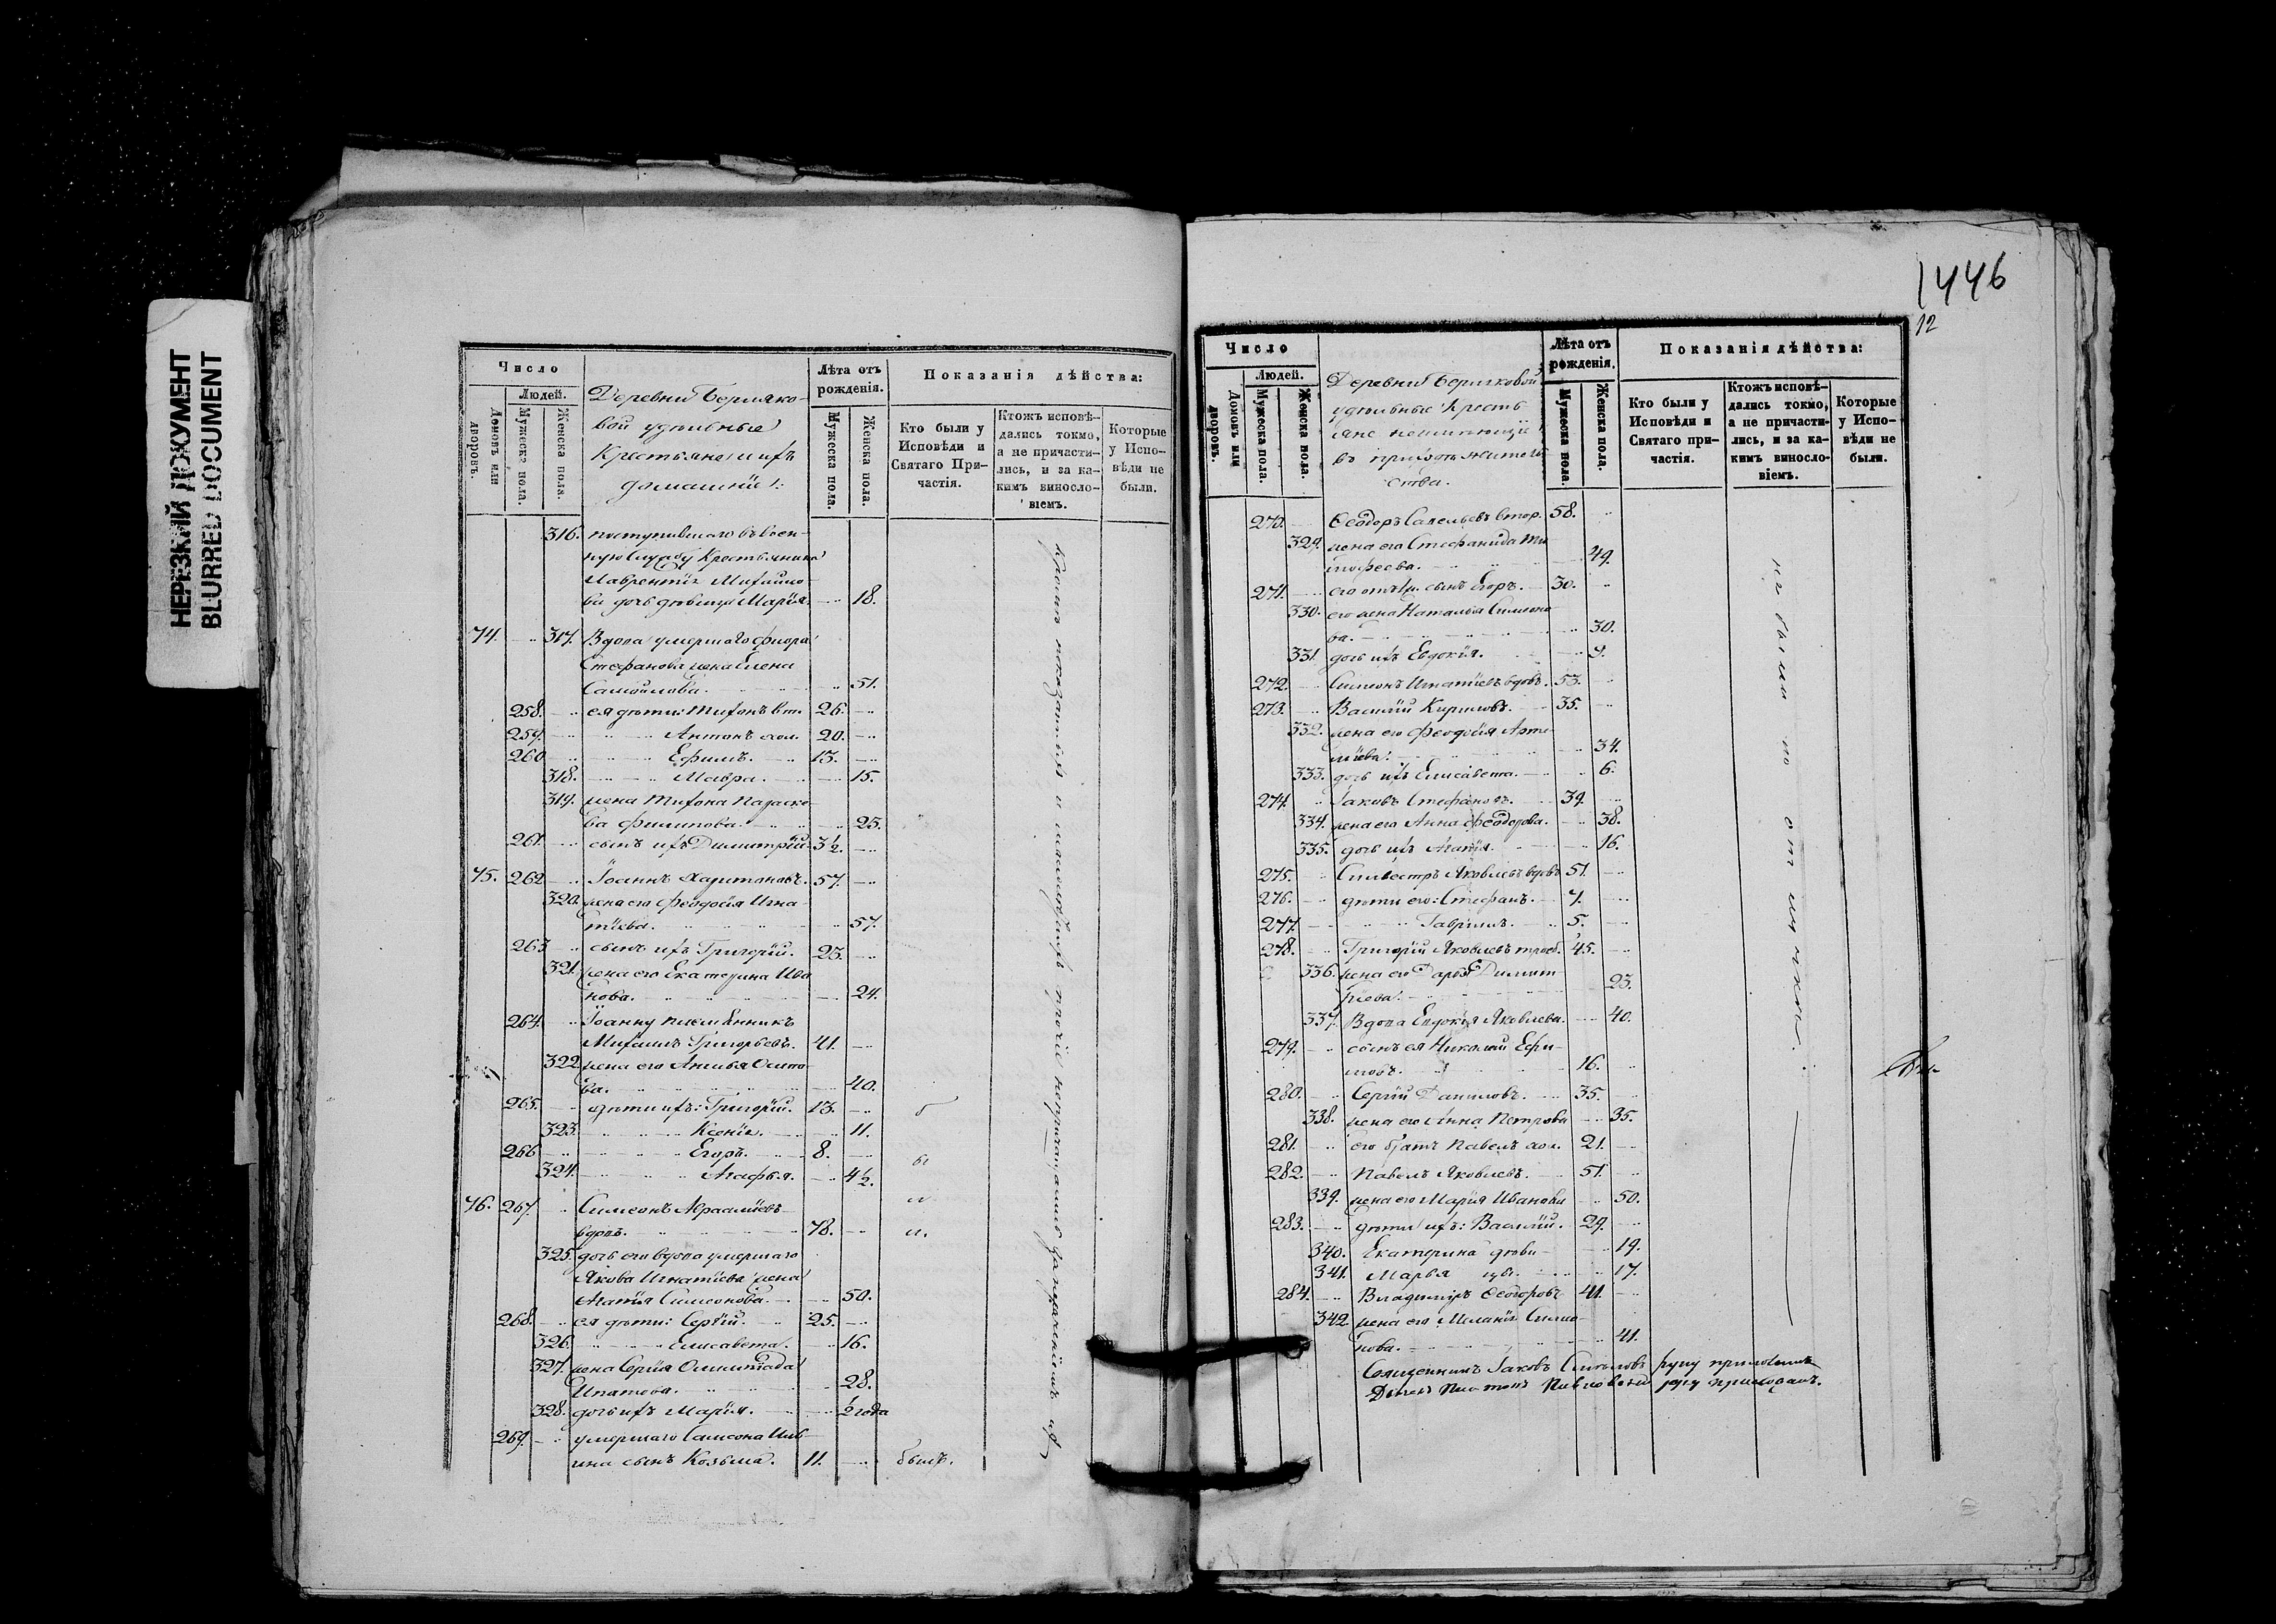 НЕРЕЗКИЙ ДОКУМЕНТ
BLURRED DOCUMENT
Число
Людей.
Домовъ или дворовъ.
Мужеска пола.
Женска пола.
Деревни Беряко-
вой удѣльные
Крестьяне и ихъ
домашніе:
Лѣта отъ рожденія.
Мужеска пола.
Женска пола.
Показанія дѣйства:
Кто были у Исповѣди и Святаго При-частія.
Ктожъ исповѣ-дались токмо, а не причасти-лись, и за ка-кимъ виносло-віемъ.
Которые у Испо-вѣди не были.
316. поступившаго въ воен-
ную службу Крестьянина
Лаврентія Михайло-
ва дочь дѣвица Марія. 18.
74. 317. Вдова умершаго Флора
Стефанова жена Елена
Самойлова. 51.
258. ея дѣти: Тихонъ 26.
259. Антонъ хол. 20.
260 Ефимъ. 13.
318. Мавра. 15.
319. жена Тихона Параске-
ва Филипова. 25.
261. сынъ ихъ Димитрій 3½.
75. 262 Іоаннъ Харитоновъ. 57.
320. жена его Феодосія Игна-
тіева. 57.
263 сынъ ихъ Григорій. 23.
321. жена его Екатерина Ива
нова. 24.
264. Іоанну племянникъ
Михаилъ Григорьевъ. 41.
322. жена его Анисья Осипо-
ва. 40.
265. дѣти ихъ: Григорій. 13.
323. Ксенія. 11.
266 Егоръ. 8.
324. Агафья. 4½.
76. 267. Симеонъ Авраамiевъ
вдовъ. 78.
325. дочь его вдова умершаго
Якова Игнатіева жена
Агапія Симеонова. 50.
268. ея дѣти: Сергій. 25.
326. Елисавета. 16.
327. жена Сергія Олимпіада
Ипатова. 28.
328. дочь ихъ Марія. ½ года
269. умершаго Самсона
сынъ Козьма. 11.
были.
1446
12
Число
Людей.
Домовъ или дворовъ.
Мужеска пола.
Женска пола.
Деревни Беряковой
удѣльные Кресть
яне неимѣющіе
въ приходѣ житель
ства.
Лѣта отъ рожденія.
Мужеска пола.
Женска пола.
Показанія дѣйства:
Кто были у Исповѣди и Святаго при-частія.
Ктожъ исповѣ-дались токмо, а не причасти-лись, и за ка-кимъ виносло-віемъ.
Которые у Испо-вѣди не были.
270. Ѳеодоръ Савельевъ втор. 58.
329. жена его Стефанида Ти
мофеева. 49.
271. его сынъ Егоръ. 30.
330. его жена Наталья Симеоно
ва. 30.
331. дочь ихъ Евдокія. 9.
272. Симеонъ Игнатіевъ вдовъ. 53.
273. Василій Кириловъ. 35.
332. жена его Феодосія Арте
міева. 34.
333. дочь ихъ Елисавета. 6.
274. Іаковъ Стефановъ. 39.
334. жена его Анна Феодорова. 38.
335. дочь ихъ Агапія. 16.
275. Сильвестръ Яковлевъ вдовъ 51.
276. дѣти его: Стефанъ. 7.
277. Гаврiилъ. 5.
278. Григорій Яковлевъ троеб. 45.
336. жена его Дарья Димит
ріева. 23.
337. Вдова Евдокія Яковлева. 40.
279. сынъ ея Николай Ефи-
мовъ. 16.
280. Сергій Даниловъ. 35.
338. жена его Анна Петрова 35.
281. его братъ Павелъ хол. 21.
282. Павелъ Яковлевъ. 51.
339. жена его Марія Иванова 50.
283. дѣти ихъ: Василій. 29.
340. Екатерина дѣви- 19.
341. Марья 17.
284. Владиміръ Ѳеодоровъ 41.
342. жена его Меланія Симео-
нова. 41.
не были по отлучкѣ.
Священникъ Іаковъ руку приложилъ
руку приложилъ.